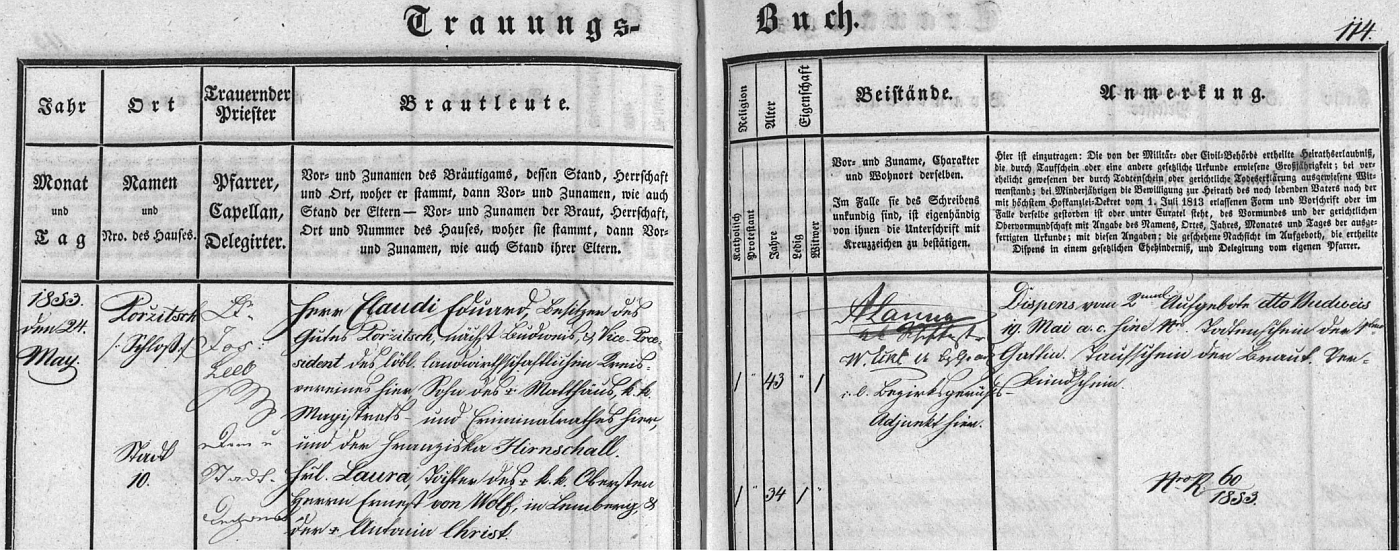 Trauungs-Buch.
114.
Jahr
Ort
Trauernder
Priester
Brautleute.
Monat
und
Tag
Namen
und
Nro. des Hauses.
Pfarrer,
Capellan,
Delegirter.
Vor- und Zunamen des Bräutigams, dessen Stand, Herrschaft
und Ort, woher er stammt, dann Vor- und Zunamen, wie auch
Stand der Eltern — Vor- und Zunamen der Braut, Herrschaft,
Ort und Nummer des Hauses, woher sie stammt, dann Vor-
und Zunamen, wie auch Stand ihrer Eltern.
Religion
Alter
Eigenschaft
Beistände.
Anmerkung.
Katholisch
Protestant
Jahre
Ledig
Witwer
Vor- und Zuname, Charakter
und Wohnort derselben.
Im Falle sie des Schreibens
unkundig sind, ist eigenhändig
von ihnen die Unterschrift mit
Kreuzzeichen zu bestätigen.
Hier ist einzutragen: Die von der Militär- oder Civil-Behörde ertheilte Heirathserlaubniß,
die durch Taufschein oder eine andere gesetzliche Urkunde erwiesene Großjährigkeit; bei ver
ehelicht gewesenen der durch Todtenschein oder gerichtliche Todeserklärung ausgewiesene Wit-
wenstand; bei Minderjährigen die Bewilligung zur Heirath des noch lebenden Vaters nach der
mit höchstem Hofkanzlei-Dekret vom 1. Juli 1813 erlassenen Form und Vorschrift oder im
Falle derselbe gestorben ist oder unter Curatel steht, des Vormundes und der gerichtlichen
Obervormundschaft mit Angabe des Namens, Ortes, Jahres, Monates und Tages der ausge-
fertigten Urkunde; mit diesen Angaben; die geschehene Nachsicht im Aufgeboth, die ertheilte
Dispens in einem gesetzlichen Ehehinderniß, und Delegirung vom eigenen Pfarrer.
1853.
den 24.
May.
Porzitsch
/: Schloß :/
Stadt
10.
Jos:
Herr Claudi Eduard, Besitzer des
Gutes Porzitsch, nächst Budweis, & Vice-Prä-
sident des löbl. landwirthschaftlichen Kreis-
vereines hier, Sohn des + Matthäus, k. k.
Magistrats- und Criminalrathes hier,
und der Franziska Hirnschall.
Frl. Laura Tochter des + k. k. Obersten
Herrn Ernest von Wolf, in Lemberg, &
der + Antonia Christ.
1 " 43 1
1 " 34 1 "
k. k. Bezirksgerichts-
Adjunkt hier.
Dispens vom 2ten Aufgebote dto Budweis
19. Mai a. c. Todtenschein der
Gattin. Taufschein der Braut. Ver-
kündschein.
60/1853.